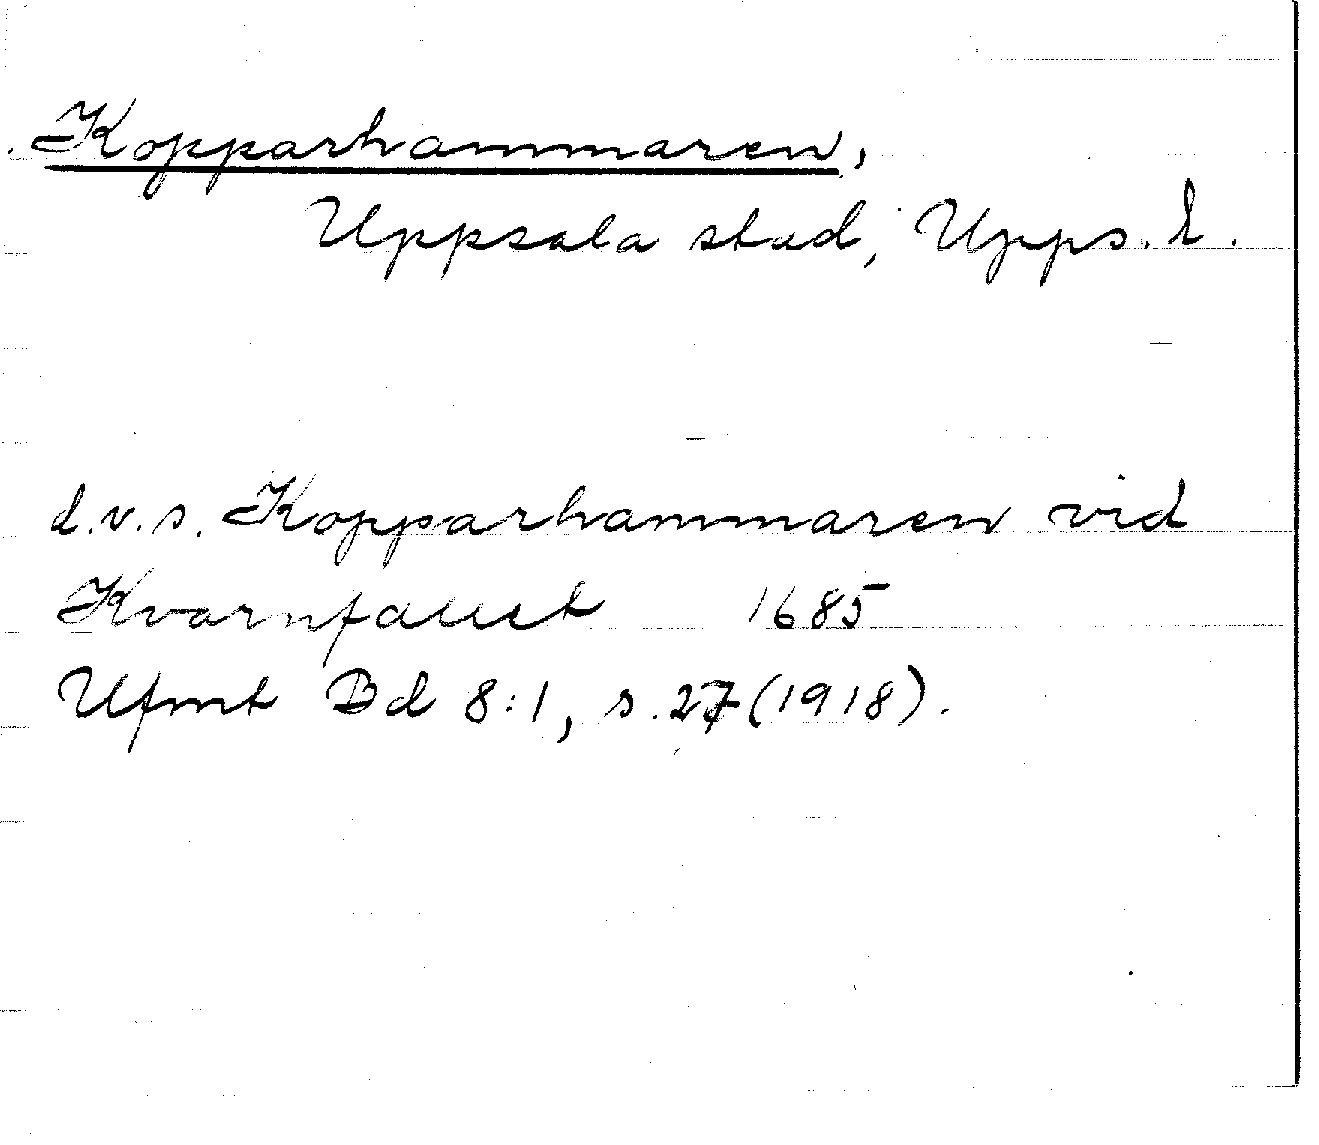 Kopparhammaren,
Uppsala stad, Upps. l.
d.v.s. Kopparhammaren vid
Kvarnfallet 1685
Ufmt Bd 8:1, s. 27 (1918).